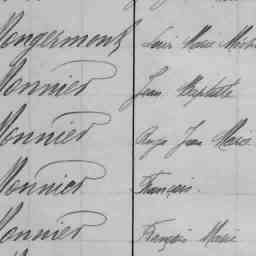 Mongermont Louis Marie
Monnier Jean Baptiste
Monnier Jean Marie
Monnier François
Monnier François Marie